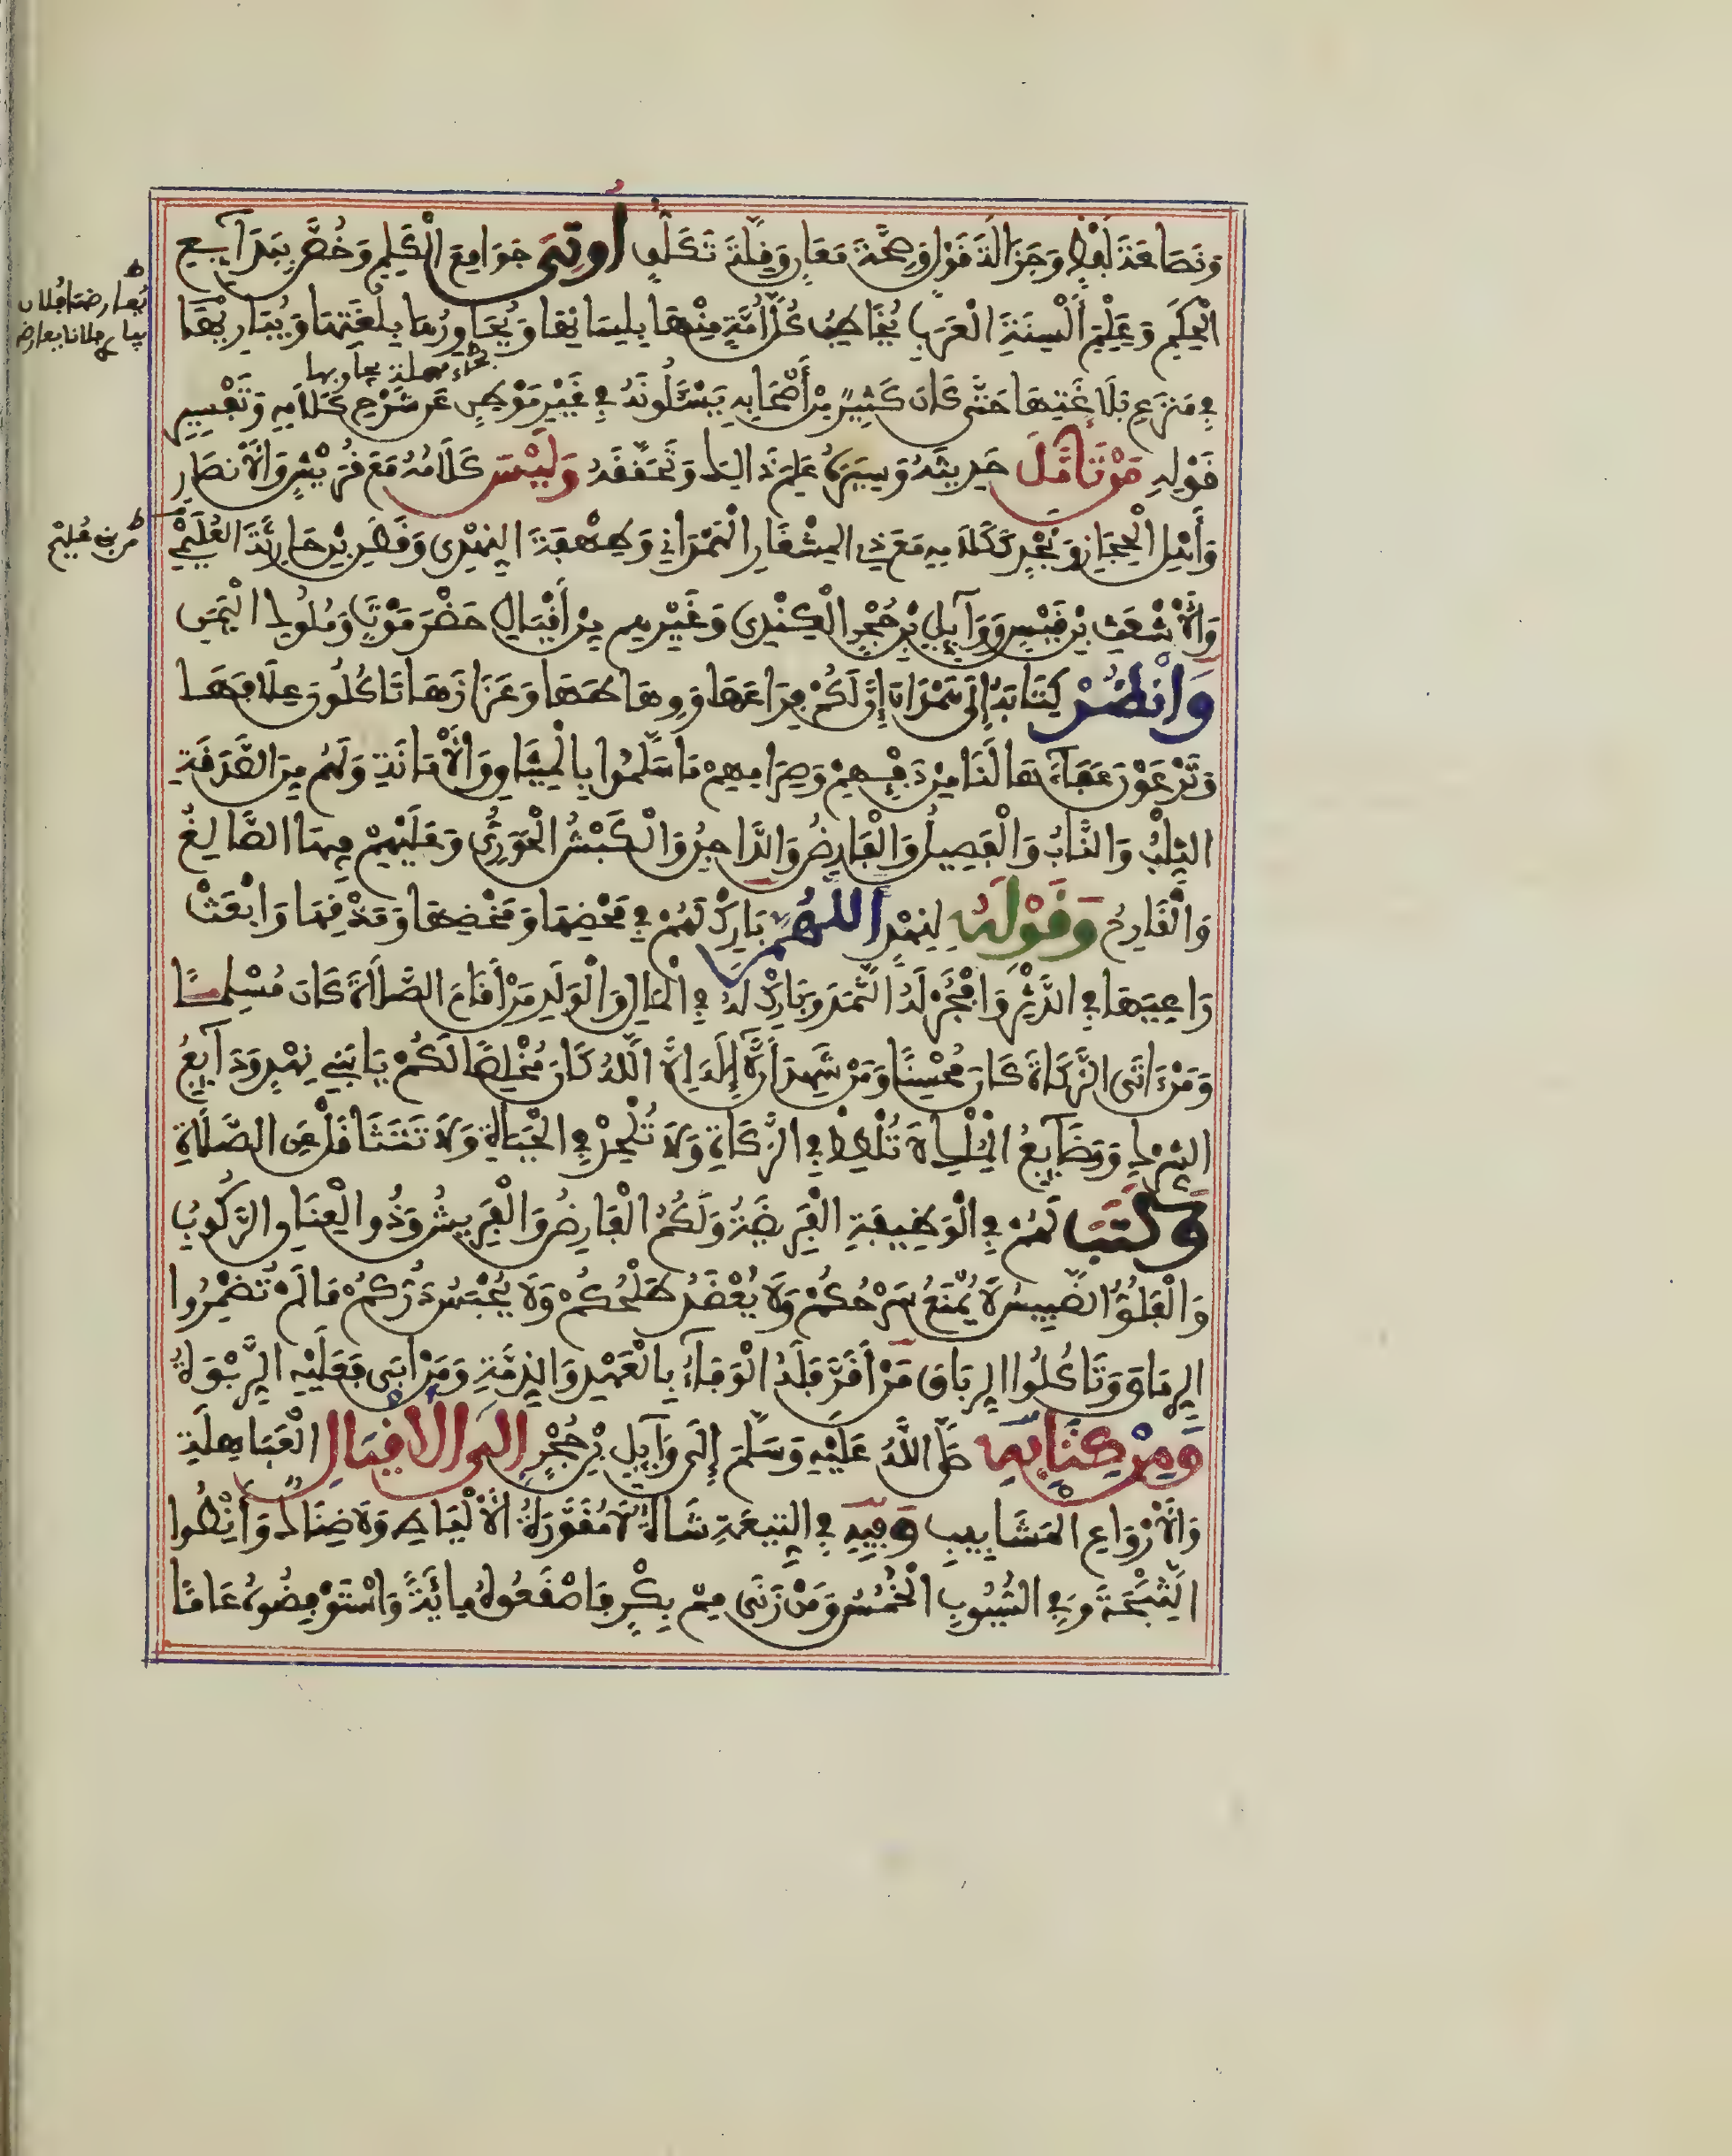 وَنَصَاعَةَ لَفْظٍ وَجَزَالَةَ قَوْلٍ وَصِحَّةَ مَعَانٍ وَقِلَّةَ تَكَلُّفٍ أُوتِيَ جَوَامِعَ الْكَلِمِ وَخُصَّ بِبَدَائِعِ
الْحِكَمِ وَعِلْمِ أَلْسِنَةِ الْعَرَبِ يُخَاطِبُ كُلَّ أُمَّةٍ مِنْهَا بِلِسَانِهَا وَيُحَاوِرُهَا بِلُغَتِهَا وَيُبَارِيهَا
فِي مَنْزَعِ بَلَاغَتِهَا حَتَّى كَانَ كَثِيرٌ مِنْ أَصْحَابِهِ يَسْئَلُونَهُ فِي غَيْرِ مَوْطِنٍ عَنْ شَرْحِ كَلَامِهِ وَتَفْسِيرِ
قَوْلِهِ مَنْ تَأَمَّلَ حَدِيثَهُ وَسِيَرَهُ عَلِمَ ذَالِكَ وَتَحَقَّقَهُ وَلَيْسَ كَلَامُهُ مَعَ قُرَيْشٍ وَالْأَنْصَارِ
وَأَهْلِ الْحِجَازِ وَنَجْدٍ كَكَلَامِهِ مَعَ ذِي الْمِشْعَارِ الْهَمْدَانِي وَطِهْفَةَ النَّهْدِي وَقَطَنِ بْنِ حَارِثَةَ الْعُلَيْمِي
وَالْأَشْعَثِ بْنِ قَيْسٍ وَوَآئِلِ بْنِ حُجْرٍ الْكِنْدِي وَغَيْرِهِمْ مِنْ أَقْيَالِ حَضْرَمَوْتَ وَمُلُوكِ الْيَمَنِ
وَانْظُرْ كِتَابَهُ إِلَى هَمْدَانَ إِنَّ لَكُمْ فِرَاعَهَا وَوِهَاطَهَا وَعَزَازَهَا تَاكُلُونَ عِلَافَهَا
وَتَرْعَوْنَ عَفَاءَهَا لَنَا مِنْ دِفْئِهِمْ وَصِرَامِهِمْ مَا سَلَّمُوا بِالْمِيثَاقِ وَالْأَمَانَةِ وَلَهُمْ مِنَ الصَّدَقَةِ
الثِّلْبُ وَالنَّابُ وَالْفَصِيلُ وَالْفَارِضُ وَالدَّاجِنُ وَالْكَبْشُ الْحَوَرِيُّ وَعَلَيْهِمْ فِيهَا الصَّالِغُ
وَالْقَارِحُ وَقَوْلَهُ لِنَهْدٍ اللَّهُمَّ بَارِكْ لَهُمْ فِي مَحْضِهَا وَمَخْضِهَا وَمَذْقِهَا وَابْعَثْ
رَاعِيَهَا فِي الدَّثْرِ وَافْجُرْ لَهُ الثَّمَدَ وَبَارِكْ لَهُ فِي الْمَالِ وَالْوَلَدِ مَنْ أَقَامَ الصَّلَاةَ كَانَ مُسْلِمًا
وَمَنْ ءَاتَى الزَّكَاةَ كَانَ مُحْسِنًا وَمَنْ شَهِدَ أَن لَّا إِلَهَ إِلَّا اللَّهُ كَانَ مُخْلِصًا لَكُمْ يَا بَنِي نَهْدٍ وَدَآئِعُ
الشِّرْكِ وَوَضَآئِعُ الْمِلْكِ لَا تُلْطِطْ فِي الزَّكَاةِ وَلَا تُلْحِدْ فِي الْحَيَاةِ وَلَا تَتَثَاقَلْ عَنِ الصَّلَاةِ
وَكَتَبَ لَهُمْ فِي الْوَظِيفَةِ الْفَرِيضَةُ وَلَكُمُ الْفَارِضُ وَالْفَرِيشُ وَذُو الْعِنَانِ الرَّكُوبُ
وَالْفَلُوُّ الضَّبِيسُ لَا يُمْنَعُ سَرْحُكُمْ وَلَا يُعْضَدُ طَلْحُكُمْ وَلَا يُحْبَسُ دَرُّكُمْ مَا لَمْ تُضْمِرُوا
الرِّمَاقَ وَتَاكُلُوا الرِّبَاقَ مَنْ أَقَرَّ فَلَهُ الْوَفَاءُ بِالْعَهْدِ وَالذِّمَّةِ وَمَنْ أَبَى فَعَلَيْهِ الرِّبْوَةُ
وَمِنْ كِتَابِهِ صَلَّى اللَّهُ عَلَيْهِ وَسَلَّمَ إِلَى وَآئِلِ بْنِ حُجْرٍ إِلَى الْأَقْيَالِ الْعَبَاهِلَةِ
وَالْأَرْوَاعِ الْمَشَابِيبِ وَفِيهِ فِي التِّيعَةِ شَاةٌ لَا مُقَوَّرَةُ الْأَلْيَاطِ وَلَا ضِنَاكٌ وَأَنْطُوا
الثَّبَجَةَ وَفِي السُّيُوبِ الْخُمُسُ وَمَنْ زَنَى مِمْ بِكْرٍ فَاصْقَعُوهُ مِائَةً وَاسْتَوْفِضُوهُ عَامًا